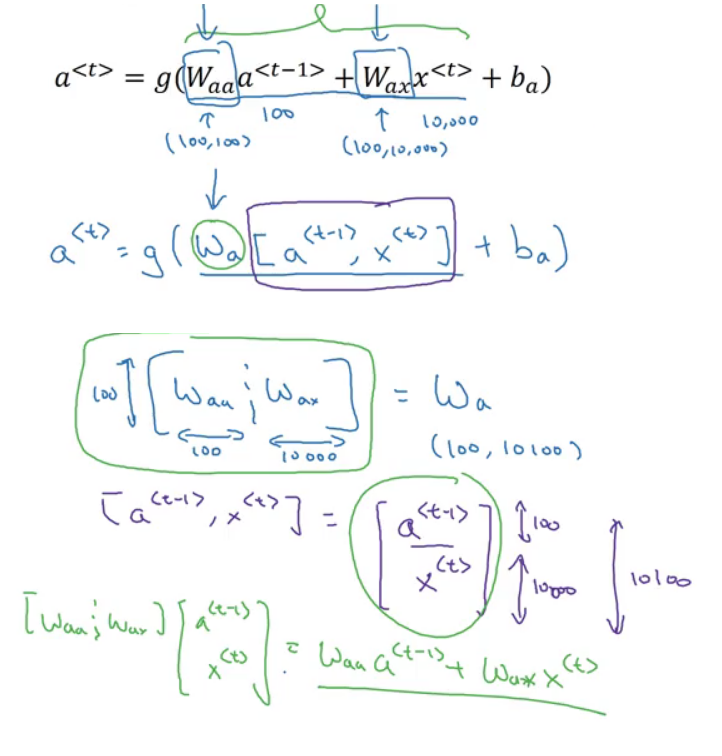 a<t> = g(Waa a<t−1> + Wax x<t> + ba)
100 10,000
(100,100) (100,10,000)
a<t> = g(Wa [a<t-1>, x<t>] + ba)
100 [Waa ; Wax] = Wa
100 10000 (100, 10100)
[a<t-1>, x<t>] = [a<t-1> x<t>] 100 10000 10100
[Waa ; Wax] [a<t-1> x<t>] = Waa a<t-1> + Wax x<t>